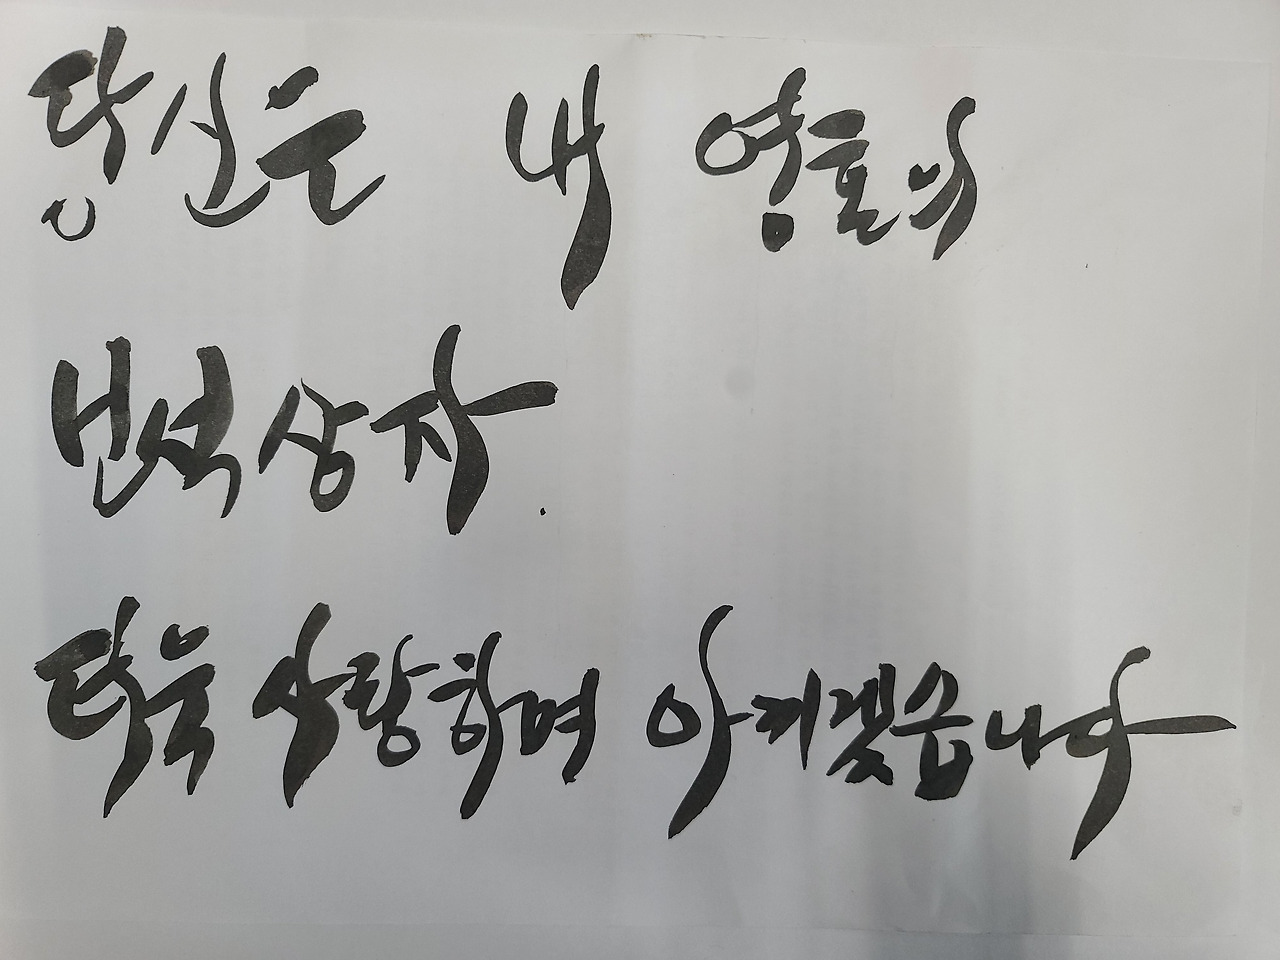 당신은 내 영혼의
보석상자.
더욱 사랑하며 아끼겠습니다